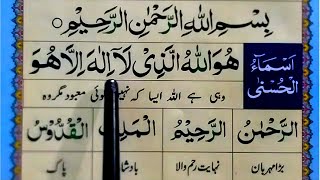 بِسْمِ اللهِ الرَّحْمٰنِ الرَّحِيْمِ
اَسْمَآءُ
الْحُسْنٰى
هُوَ اللهُ الَّذِىْ لَآ اِلٰهَ اِلَّا هُوَ
وہی ہے اللہ ایسا کہ نہیں کوئی معبود مگر وہ
الرَّحْمٰنُ الرَّحِيْمُ الْمَلِكُ الْقُدُّوْسُ
بڑا مہربان نہایت رحم والا بادشاہ پاک